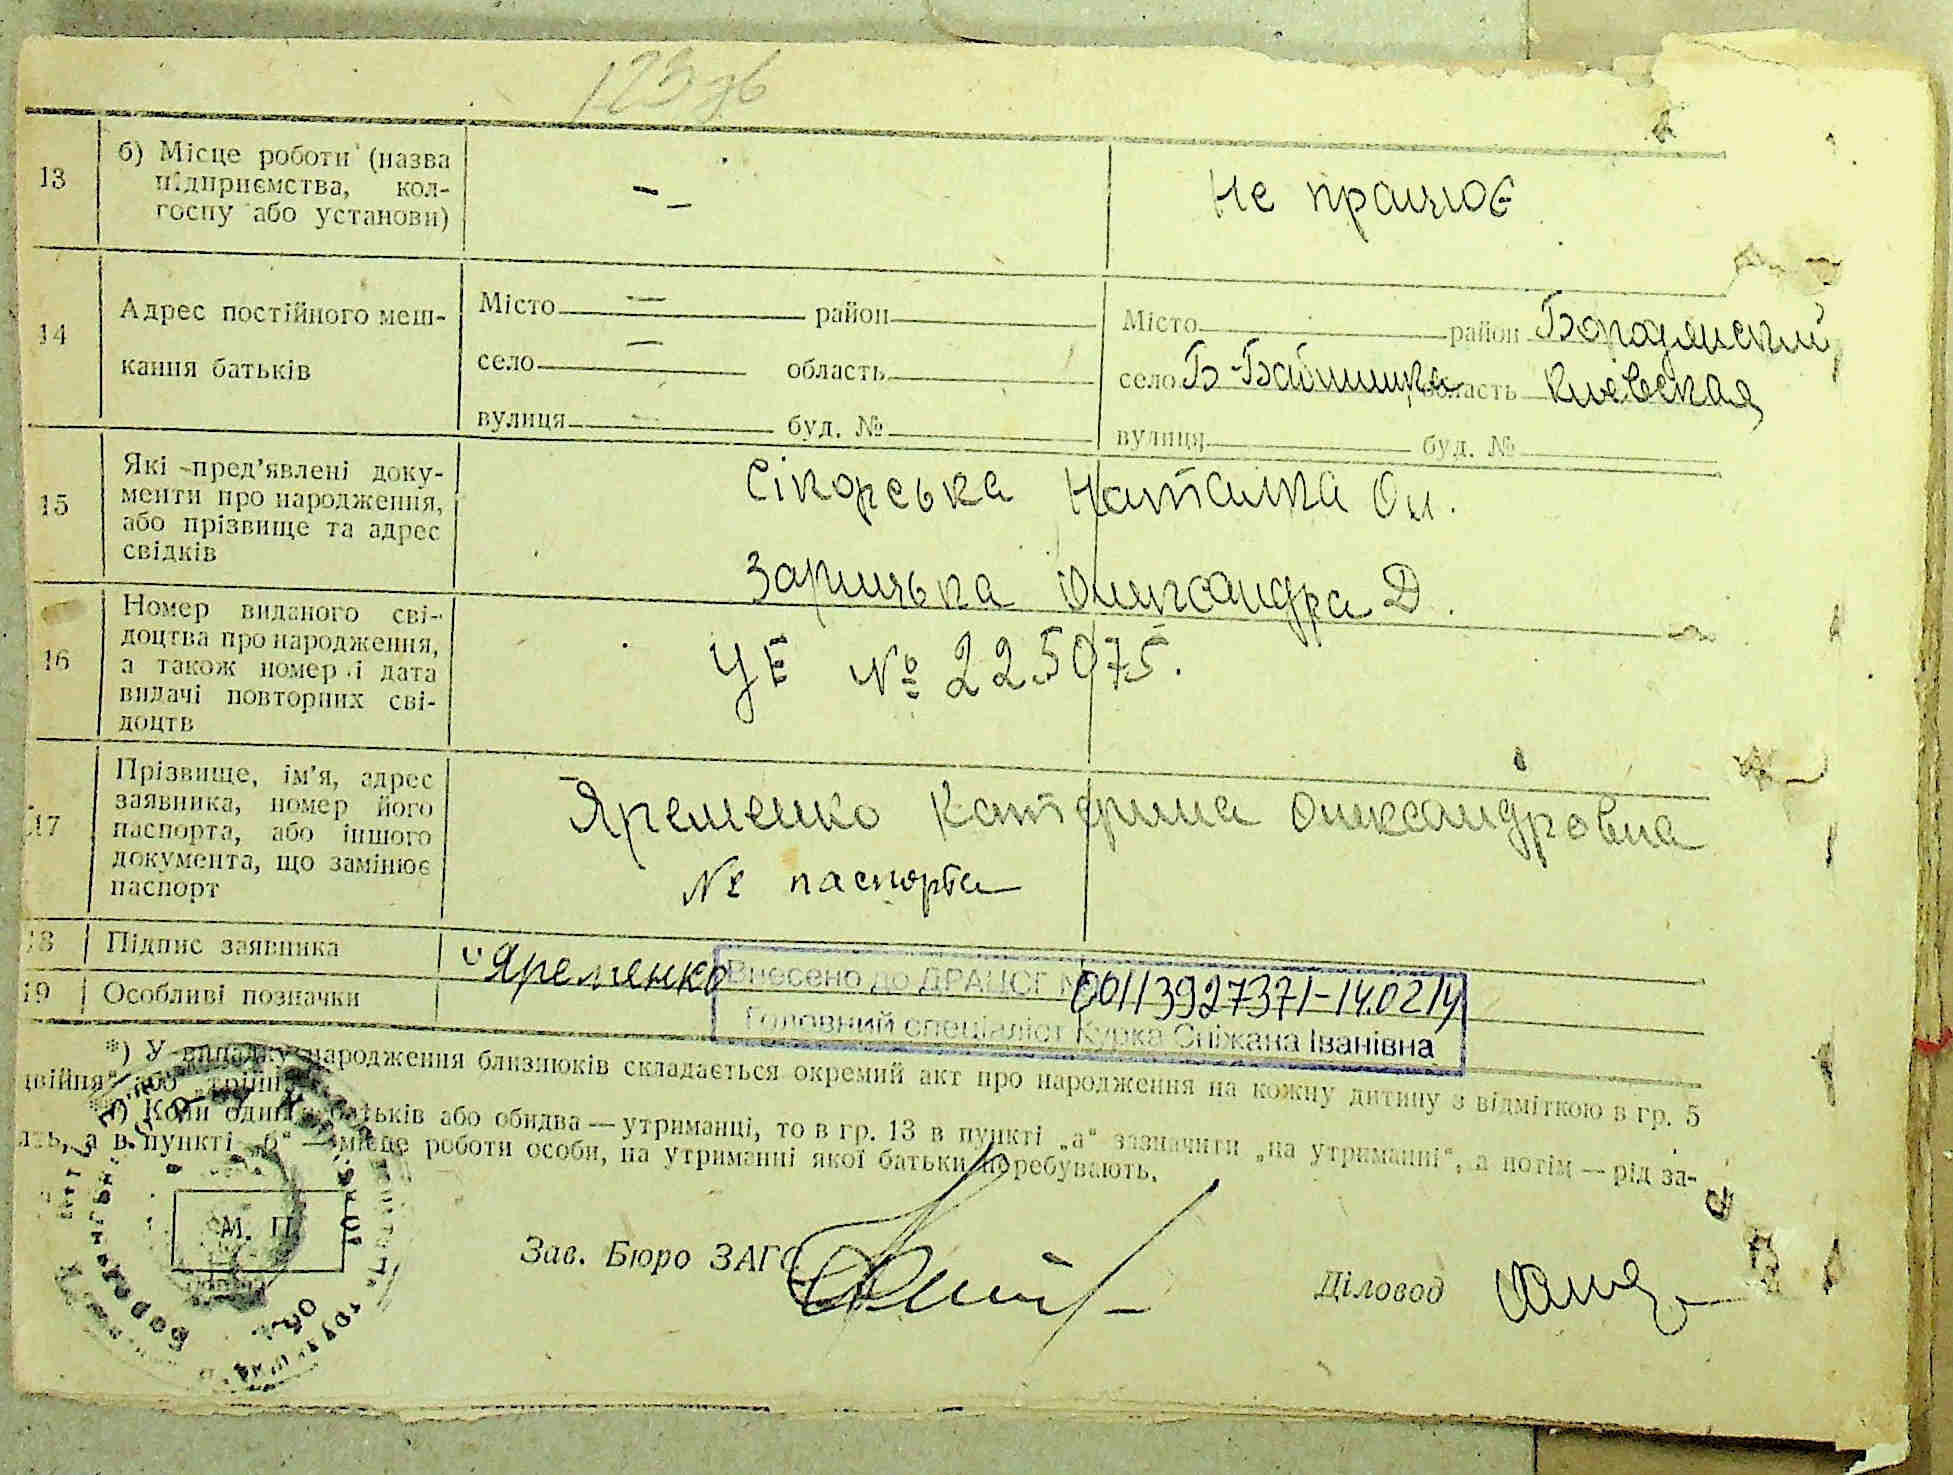 123 зв
13
б) Місце роботи (назва
підприємства, кол-
госпу або установи)
—
Не працює
14
Адрес постійного меш-
кання батьків
Місто — район
село — область
вулиця — буд. №
Місто район Бородянский
село Б-Бабинцька область Киевская
вулиця буд. №
15
Які пред’явлені доку-
менти про народження,
або прізвище та адрес
свідків
Сікорська Наталка Ол.
Зарицька Олександра Д.
16
Номер виданого сві-
доцтва про народження,
а також номер і дата
видачі повторних сві-
доцтв
УЕ № 225075.
17
Прізвище, ім’я, адрес
заявника, номер його
паспорта, або іншого
документа, що замінює
паспорт
Яременко Катерина Олександровна
№ паспорта
18
Підпис заявника
Яременко
19
Особливі позначки
Внесено до ДРАЦСГ № 00113927371-14.02.14
Головний спеціаліст Курка Сніжана Іванівна
*) У випадку народження близнюків складається окремий акт про народження на кожну дитину з відміткою в гр. 5
двійня“ або „трійня
Коли один з батьків або обидва — утриманці, то в гр. 13 в пункті „а“ зазначити „на утриманні“, а потім — рід за-
а в пункті „б“ — місце роботи особи, на утриманні якої батьки перебувають.
М. П.
Зав. Бюро ЗАГС
Діловод